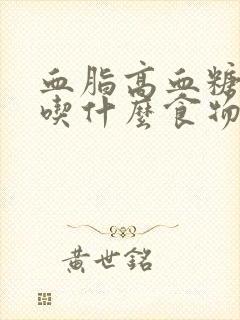 血脂高血糖
喫什麼食物
黃世銘